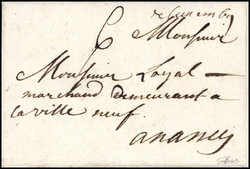 Monsieur
Monsieur Loyal
marchand demeurant a
la ville neuf.
a nancy